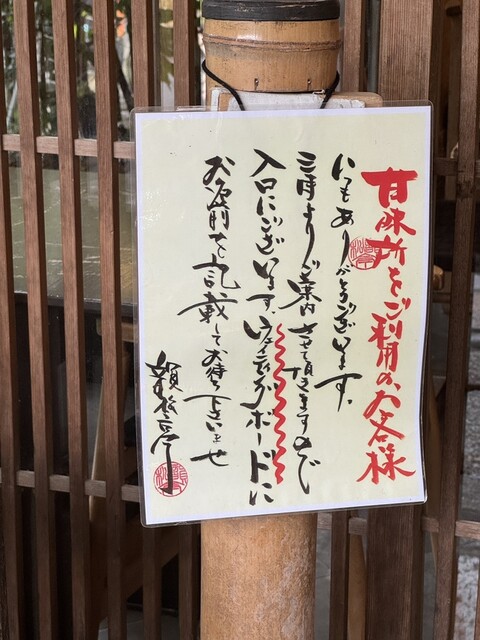 甘味所をご利用のお客様
いつもありがとうございます。
三時よりご案内させて頂きますので
入口にございます、ウェイティングボードに
お名前を記載してお待ち下さいませ